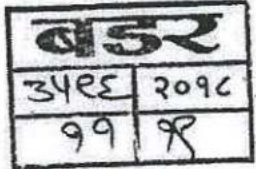 बडर
३५९६ २०१८
११ १९